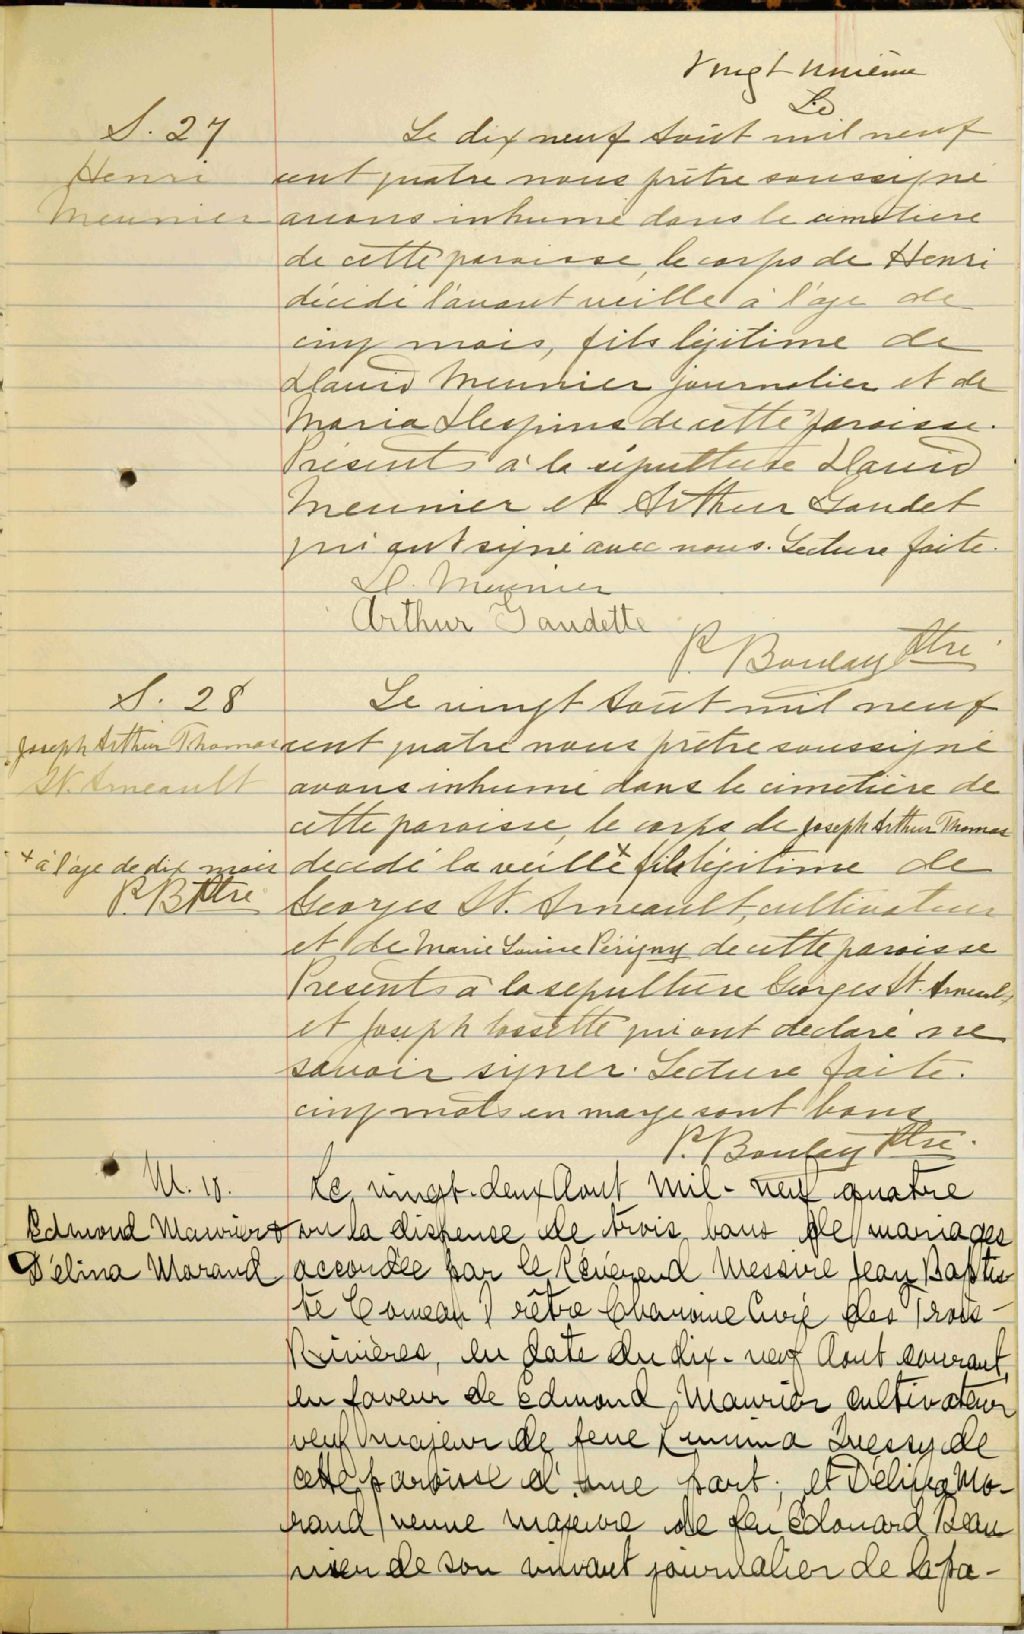 Vingt unième
Ld
S. 27
Henri
Meunier
Le dix neuf Août mil neuf
cent quatre nous prêtre soussigné
avons inhumé dans le cimetiere
de cette paroisse, le corps de Henri
décédé l'avant veille à l'age de
cinq mois, fils légitime de
David Meunier journalier et de
Maria Despins de cette paroisse.
Présents à la sépulture David
Meunier et Arthur Gaudet
qui ont signé avec nous. Lecture faite.
D. Meunier
Arthur Gaudette
P. Boulay Ptre
S. 28
Joseph Arthur Thomas
St. Arneault
Le vingt Août mil neuf
cent quatre nous prêtre soussigné
avons inhumé dans le cimetière de
cette paroisse, le corps de Joseph Arthur Thomas
décédé la veille x fils légitime de
x à l'age de dix mois
P. B Ptre
Georges St. Arneault, cultivateur
et de Marie Louise Périgny de cette paroisse
Présents à la sepulture Georges St. Arneault
et Joseph Cossette qui ont declaré ne
savoir signer. Lecture faite.
cinq mots en marge sont bons
P. Boulay Ptre.
M. 10.
Edmond Maurier &
Délina Morand
Le vingt-deux Aout mil-neuf quatre
vu la dispense de trois bans de mariages
accordée par le Révérend Messire Jean Baptis
te Comeau Prêtre Chanoine Curé des Trois-
Rivières, en date du dix-neuf Aout courant,
en faveur de Edmond Maurier cultivateur
veuf majeur de feue Quessy de
cette paroisse d'une part; et Délina Mo-
rand veuve majeure de feu Edouard Beau
mier de son vivant journalier de la pa-